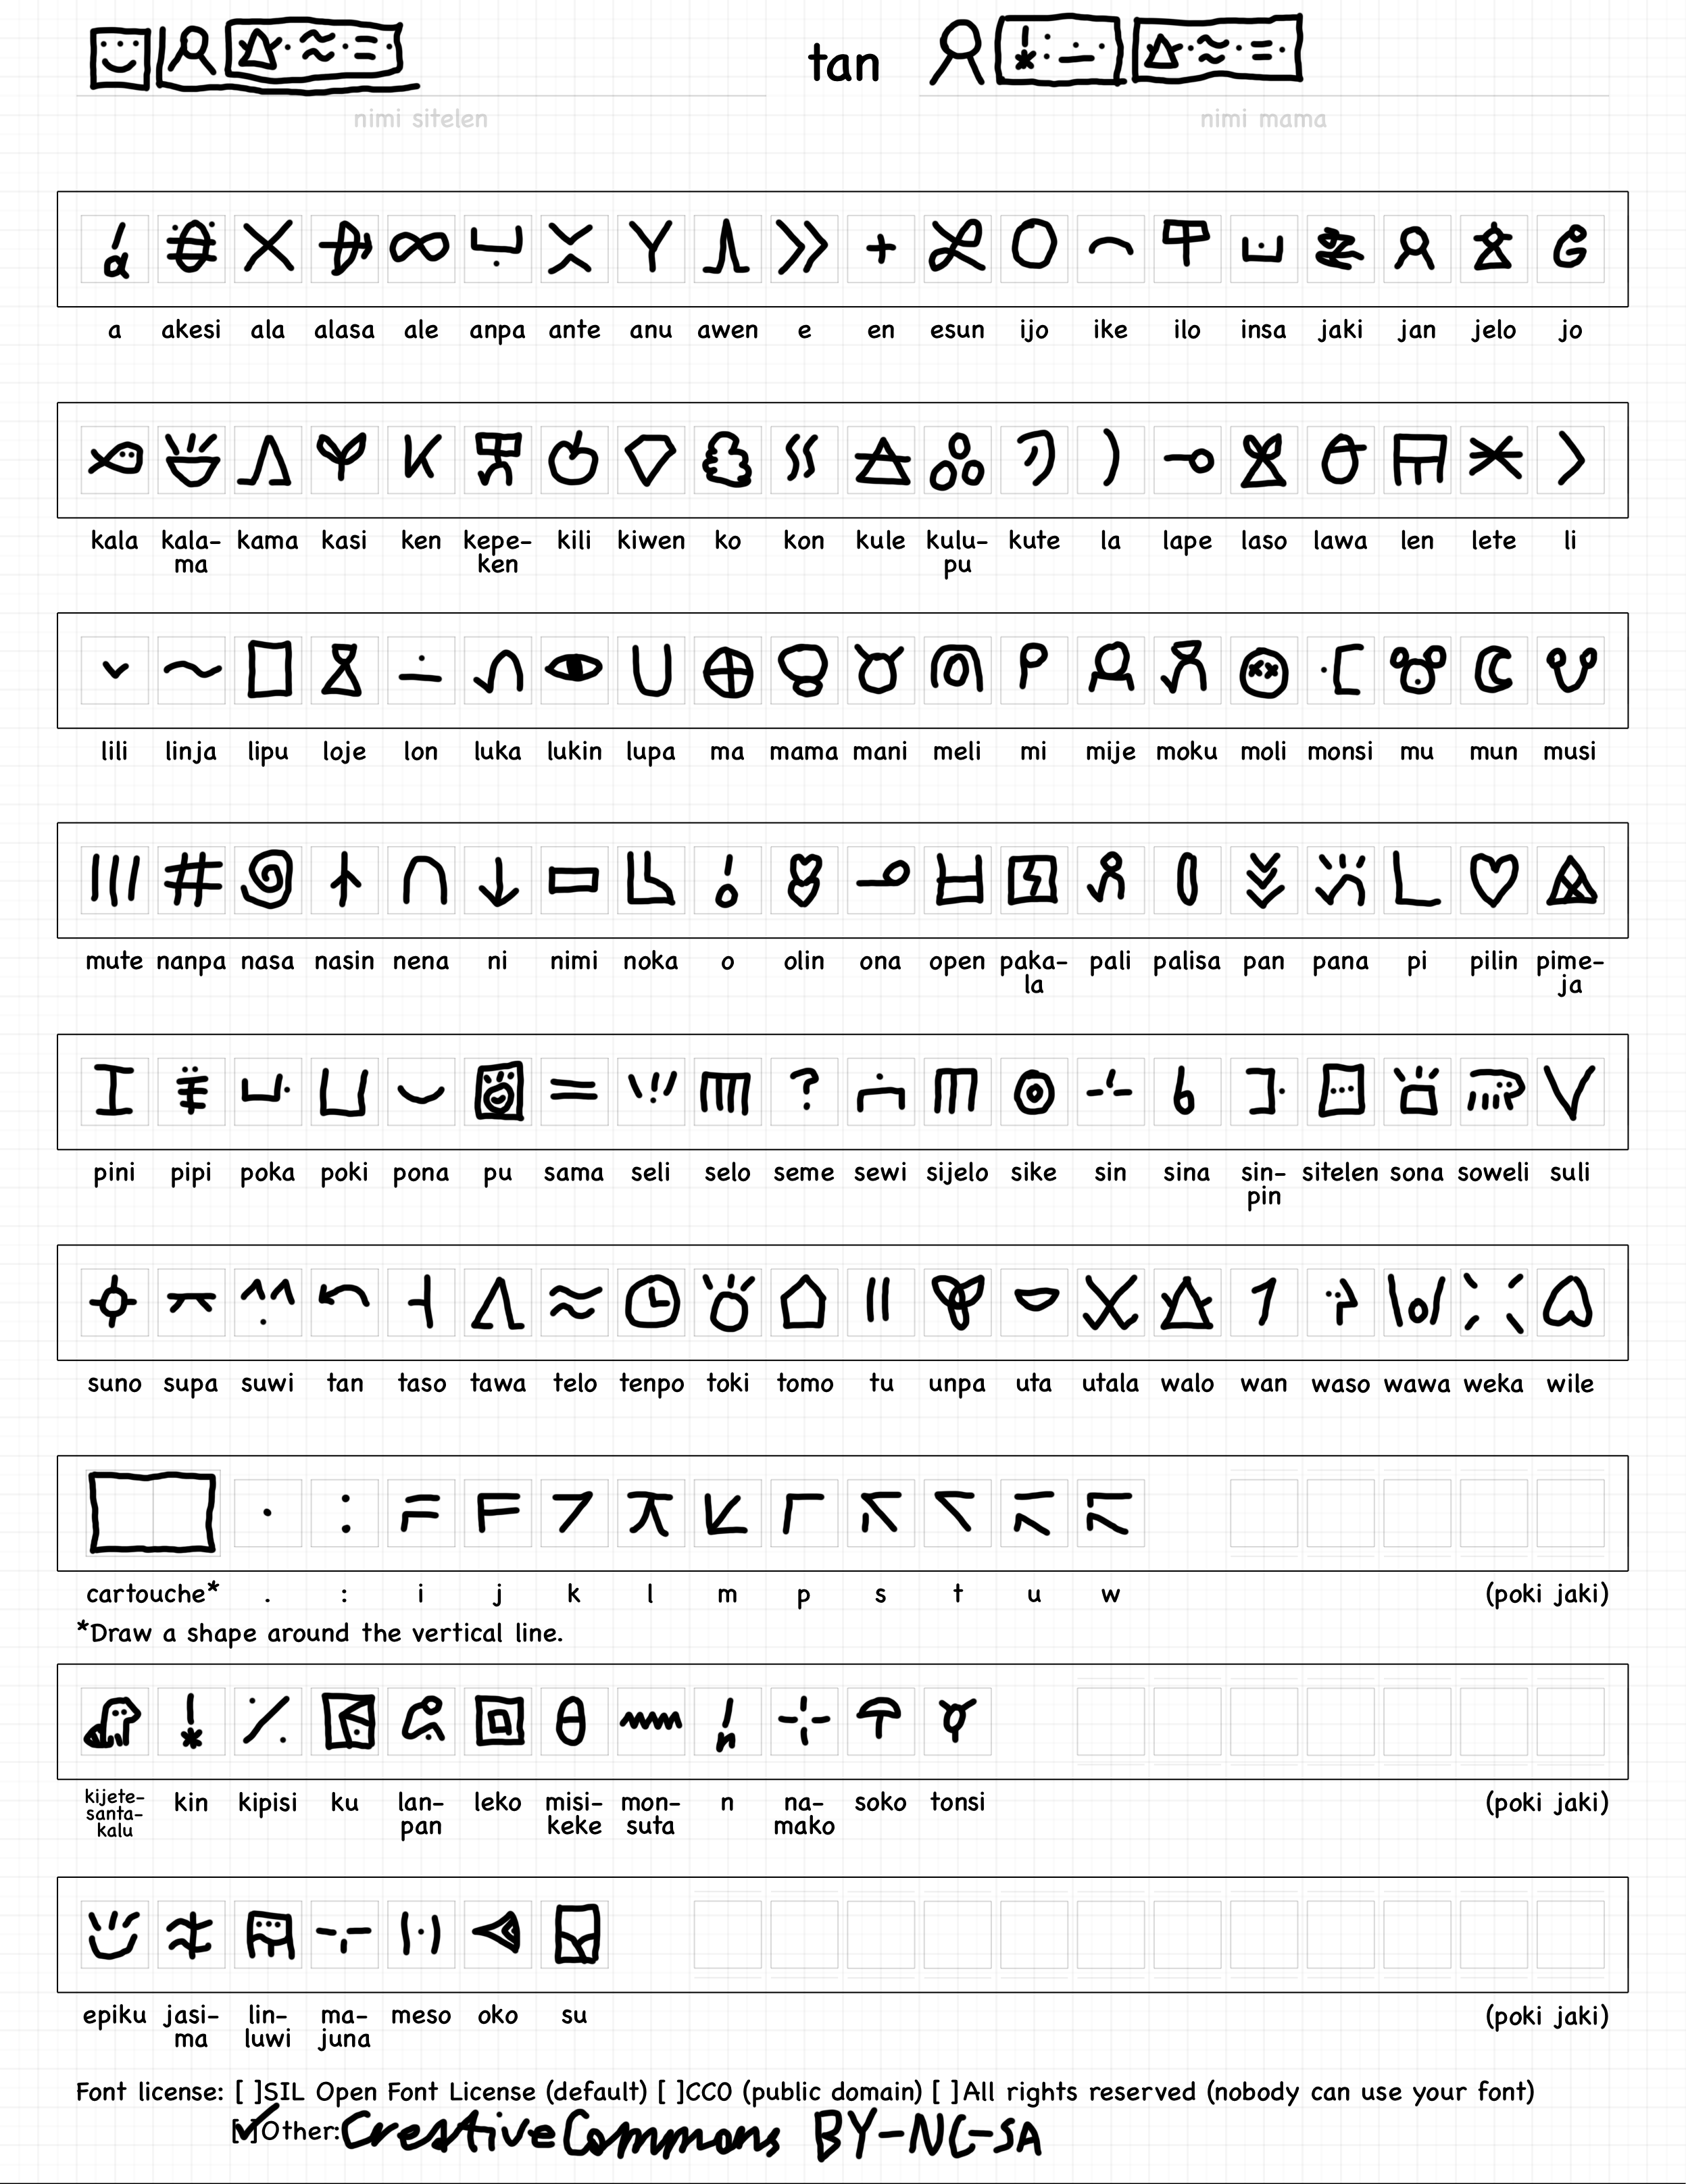 tan
nimi sitelen
nimi mama
a akesi ala alasa ale anpa ante anu awen e en esun ijo ike ilo insa jaki jan jelo jo
kala kala- kama kasi ken kepe- kili kiwen ko kon kule kulu- kute la lape laso lawa len lete li
ma ken pu
lili linja lipu loje lon luka lukin lupa ma mama mani meli mi mije moku moli monsi mu mun musi
mute nanpa nasa nasin nena ni nimi noka o olin ona open paka- pali palisa pan pana pi pilin pime-
la ja
pini pipi poka poki pona pu sama seli selo seme sewi sijelo sike sin sina sin- sitelen sona soweli suli
pin
suno supa suwi tan taso tawa telo tenpo toki tomo tu unpa uta utala walo wan waso wawa weka wile
cartouche* . : i j k l m p s t u w (poki jaki)
*Draw a shape around the vertical line.
kijete- kin kipisi ku lan- leko misi- mon- n na- soko tonsi (poki jaki)
santa- pan keke suta mako
kalu
epiku jasi- lin- ma- meso oko su (poki jaki)
ma luwi juna
Font license: [ ]SIL Open Font License (default) [ ]CC0 (public domain) [ ]All rights reserved (nobody can use your font)
[✓]Other: Creative Commons BY-NC-SA